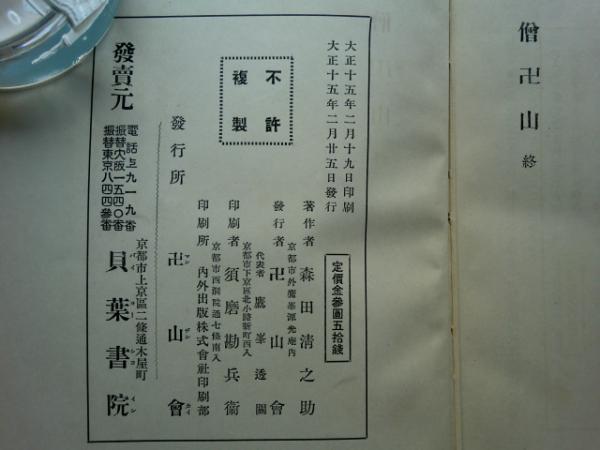 僧卍山 終
大正十五年二月十九日印刷
大正十五年二月廿五日發行
不許
複製
定價金參圓五拾錢
著作者 森田清之助
京都市外鷹峯源光庵内
發行者 卍山會
代表者 鷹峯透關
京都市下京區北小路新町西入
印刷者 須磨勘兵衞
京都市西洞院通七條南入
印刷所 內外出版株式會社印刷部
發行所 卍山會
マンザンカイ
京都市上京區二條通木屋町
發賣元 貝葉書院
バイヨーシヨイン
電話上九一九番
振替大阪一五四〇番
振替東京八四四參番